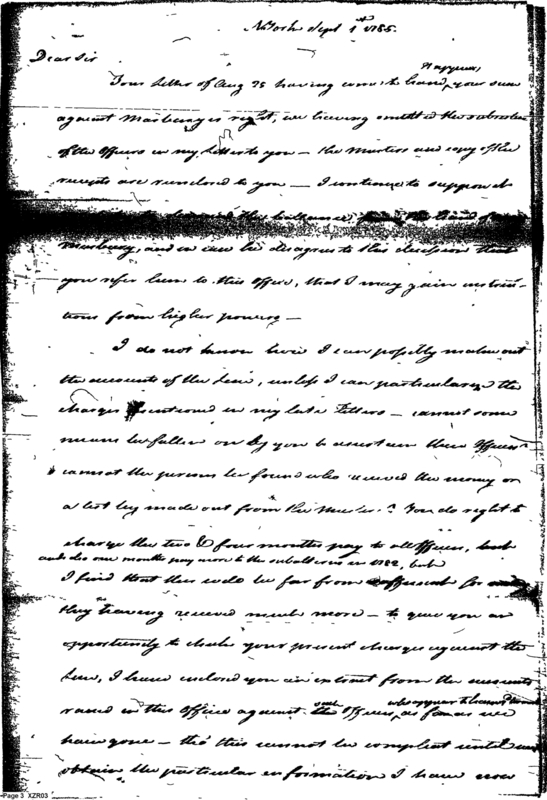 NYork Sept 1st 1785.
Dear Sir
Your Letter of Aug 25 having come to hand, it appears, your sum
against Marbury is right, we having omitted the subsistence
of the Officers in my Letter to you — the Musters and copy of the
receipts are reinclosed to you — I continue to suppose it
the ballance the hand of
Marbury, and in case he disagree to this decision that
you refer him to this Office, that I may gain instruc-
tions from higher powers —
I do not know how I can possibly make out
the accounts of the Line, unless I can particularize the
charges mentioned in my late Letters — cannot some
means be fallen on by you to ascertain these Officers
cannot the persons be found who received the money or
a list be made out from the Muster? You do right to
charge the two & four months pay to all Officers, but
and also one months pay more to the subalterns in 1782, but
I find that this will be far from sufficient for
they having received much more — to give you an
opportunity to check your present charges against the
Line, I have inclosed you an extract from the accounts
raised in this Office against such Officers, who appear to have as far as we
have gone — tho' this cannot be complete until we
obtain the particular information I have now
Page 3 XZR03